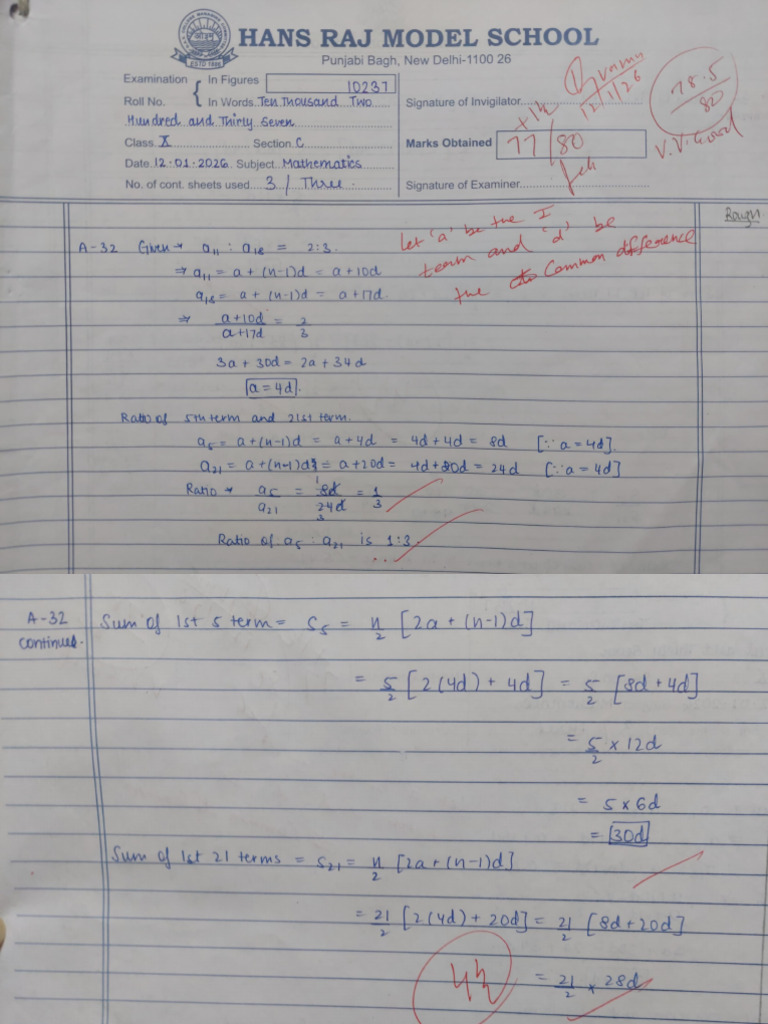 HANS RAJ MODEL SCHOOL
Punjabi Bagh, New Delhi-1100 26
Examination { In Figures 10237
Roll No. In Words Ten Thousand Two
Hundred and Thirty Seven
Class X Section C
Date 12.01.2026 Subject Mathematics
No. of cont. sheets used 3 / Three
Signature of Invigilator
12/1/26
+1½
Marks Obtained 77/80
Signature of Examiner
78.5/80
V.V.Good
Rough
Let 'a' be the I
term and 'd' be
the Common difference
A-32 Given → a₁₁ : a₁₈ = 2:3.
⇒ a₁₁ = a + (n-1)d = a+10d
a₁₈ = a + (n-1)d = a+17d
⇒ a+10d/a+17d = 2/3
3a + 30d = 2a + 34d
a = 4d.
Ratio of 5th term and 21st term.
a₅ = a+(n-1)d = a+4d = 4d+4d = 8d [∵ a = 4d].
a₂₁ = a+(n-1)d = a+20d = 4d+20d = 24d [∵ a = 4d]
Ratio → a₅/a₂₁ = 8d/24d = 1/3
Ratio of a₅ : a₂₁ is 1:3.
A-32 Sum of 1st 5 term = S₅ = n/2 [2a + (n-1)d]
continued.
= 5/2 [2(4d) + 4d] = 5/2 [8d + 4d]
= 5/2 × 12d
= 5 × 6d
= 30d
Sum of 1st 21 terms = S₂₁ = n/2 [2a+(n-1)d]
= 21/2 [2(4d) + 20d] = 21/2 [8d+20d]
= 21/2 × 28d